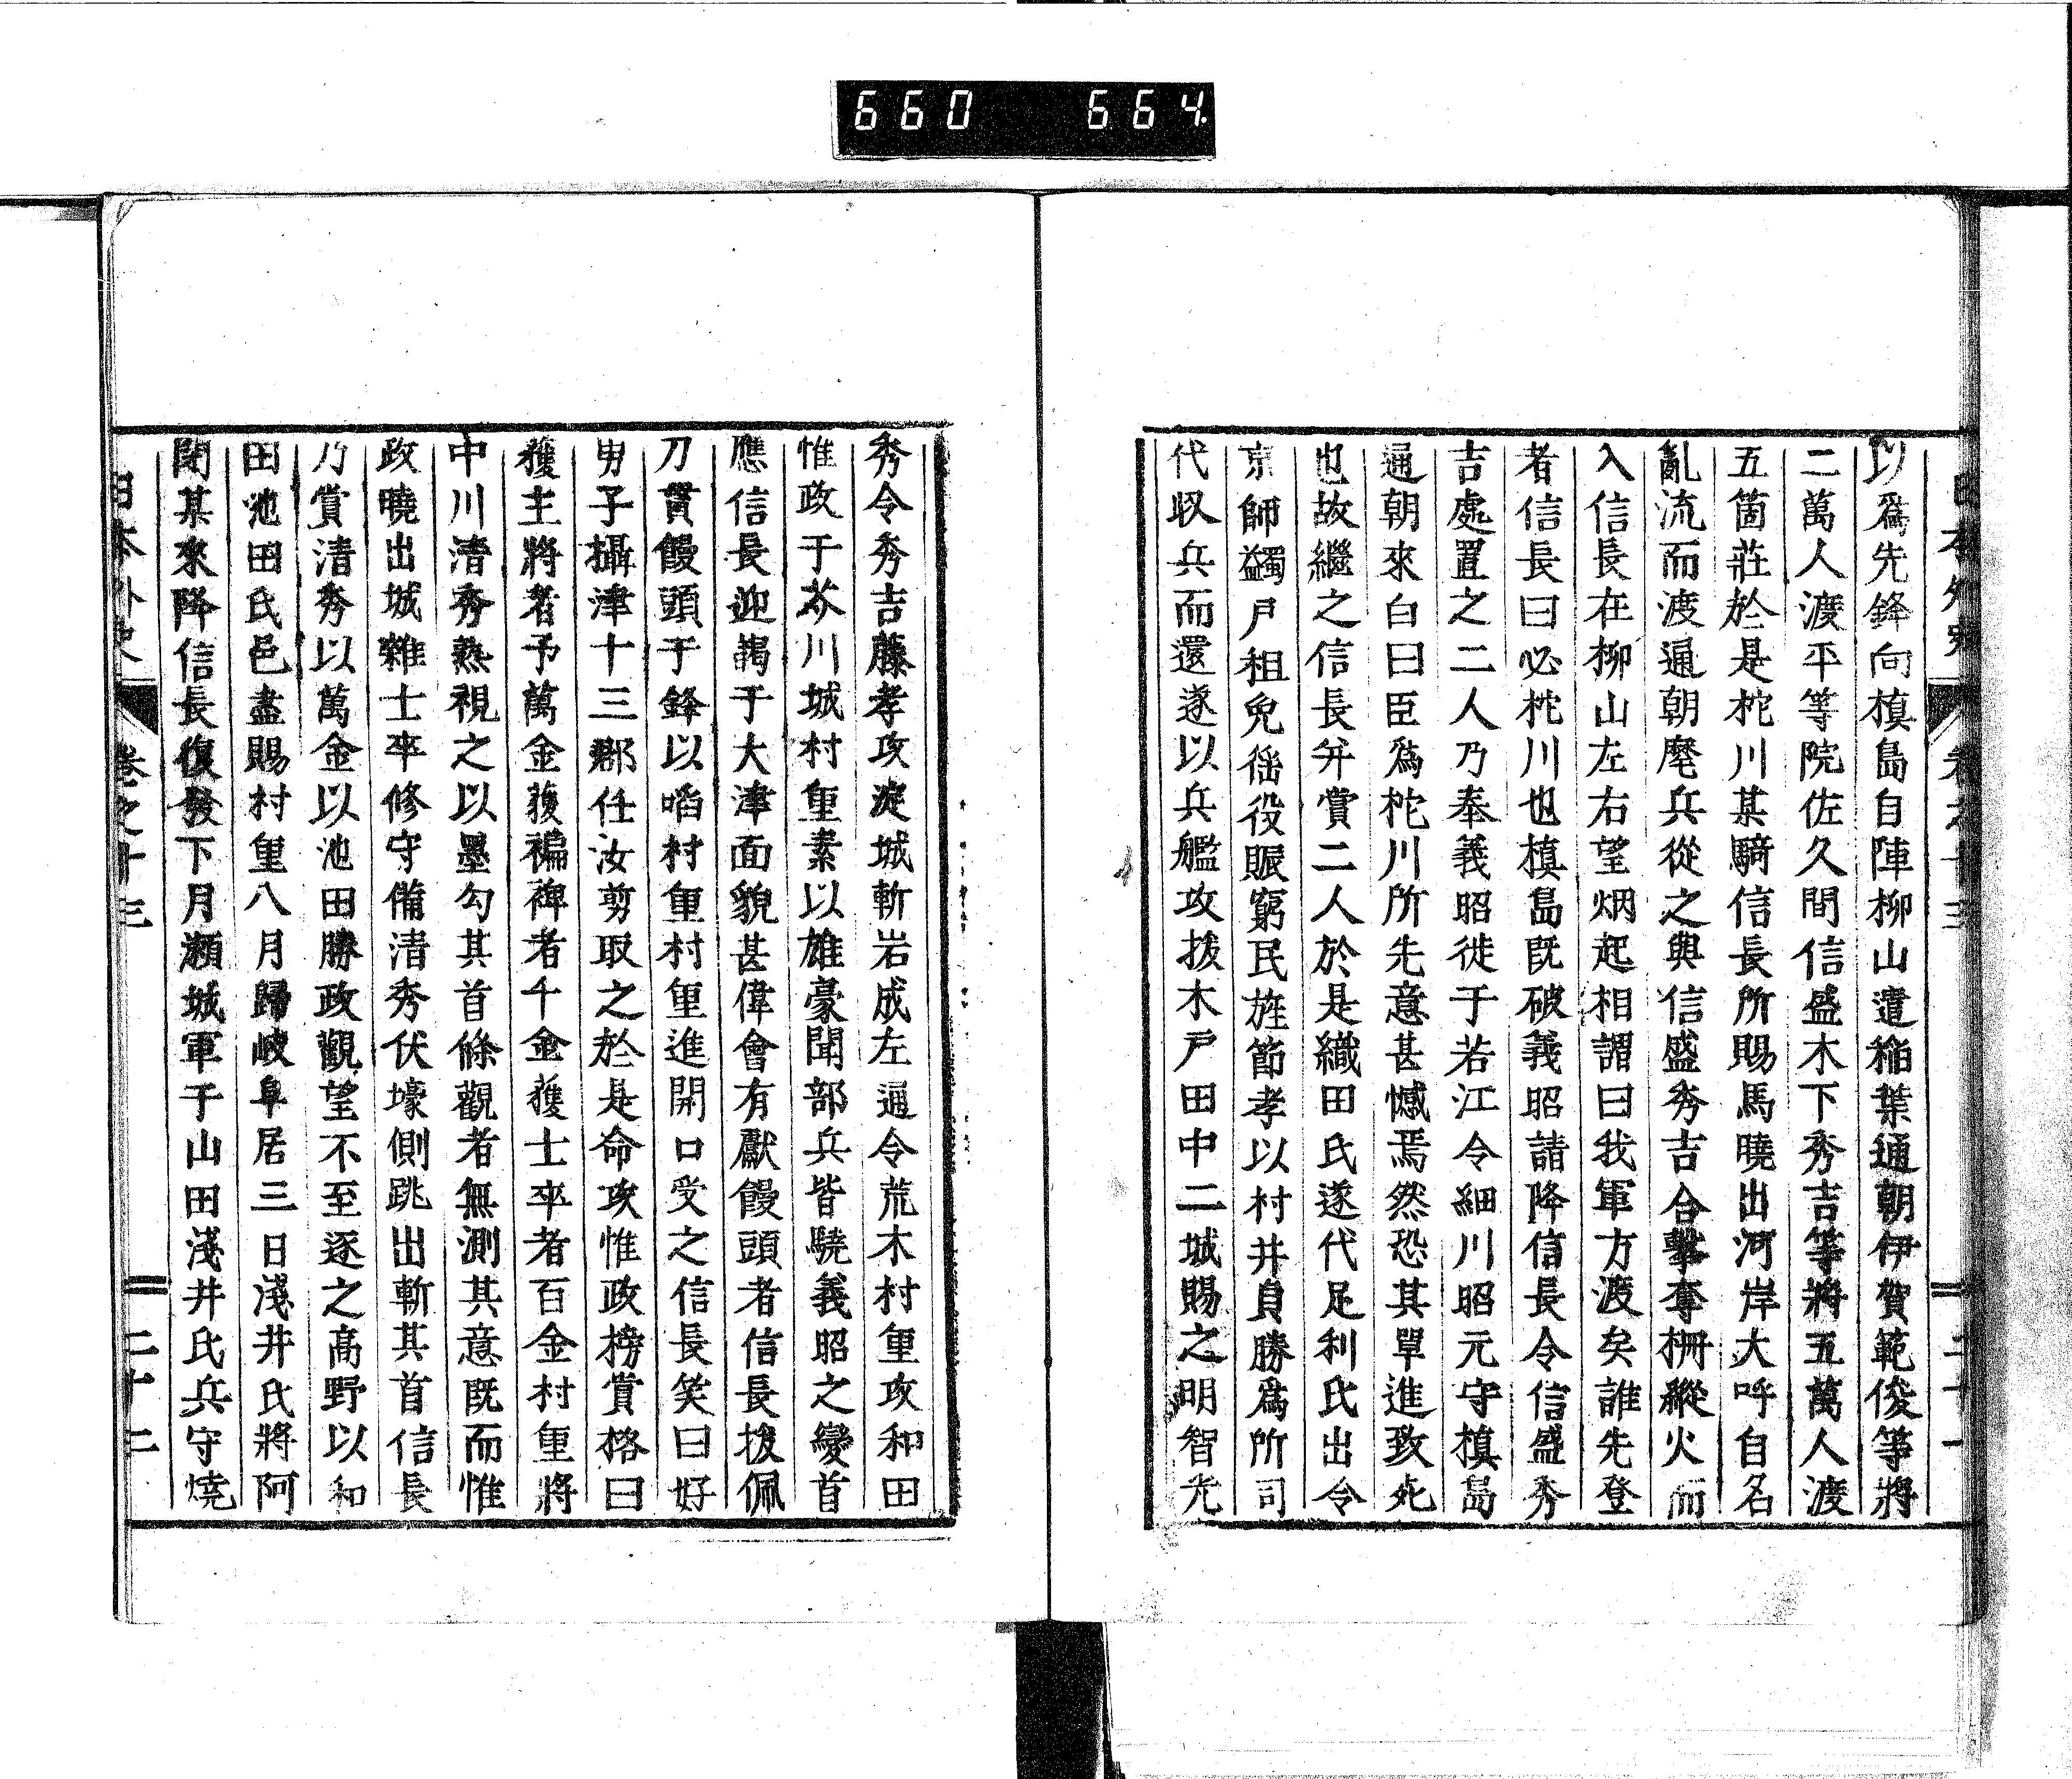 660 664.
日本外史 卷之十三 二十一
以爲先鋒向槙島自陣柳山遣稲葉通朝伊賀範俊等將
二萬人渡平等院佐久間信盛木下秀吉等將五萬人渡
五箇莊於是柁川某騎信長所賜馬曉出河岸大呼自名
亂流而渡通朝麾兵從之與信盛秀吉合擊奪柵縱火而
入信長在柳山左右望烟起相謂曰我軍方渡矣誰先登
者信長曰必柁川也槙島既破義昭請降信長令信盛秀
吉處置之二人乃奉義昭徙于若江令細川昭元守槙島
通朝來白曰臣爲柁川所先意甚憾焉然恐其單進致死
也故繼之信長幷賞二人於是織田氏遂代足利氏出令
京師蠲戶租免徭役賑窮民旌節孝以村井貞勝爲所司
代収兵而還遂以兵艦攻拔木戶田中二城賜之明智光
秀令秀吉藤孝攻淀城斬岩成左通令荒木村重攻和田
惟政于芥川城村重素以雄豪聞部兵皆驍義昭之變首
應信長迎謁于大津面貌甚偉會有獻饅頭者信長拔佩
刀貫饅頭于鋒以啗村重村重進開口受之信長笑曰好
男子攝津十三郡任汝剪取之於是命攻惟政榜賞格曰
獲主將者予萬金獲褊裨者千金獲士卒者百金村重將
中川清秀熟視之以墨勾其首條觀者無測其意既而惟
政曉出城雜士卒修守備清秀伏壕側跳出斬其首信長
乃賞清秀以萬金以池田勝政觀望不至逐之高野以和
田池田氏邑盡賜村重八月歸岐阜居三日淺井氏將阿
閉某來降信長復發下月瀬城軍于山田淺井氏兵守燒
日本外史 卷之十三 二十二